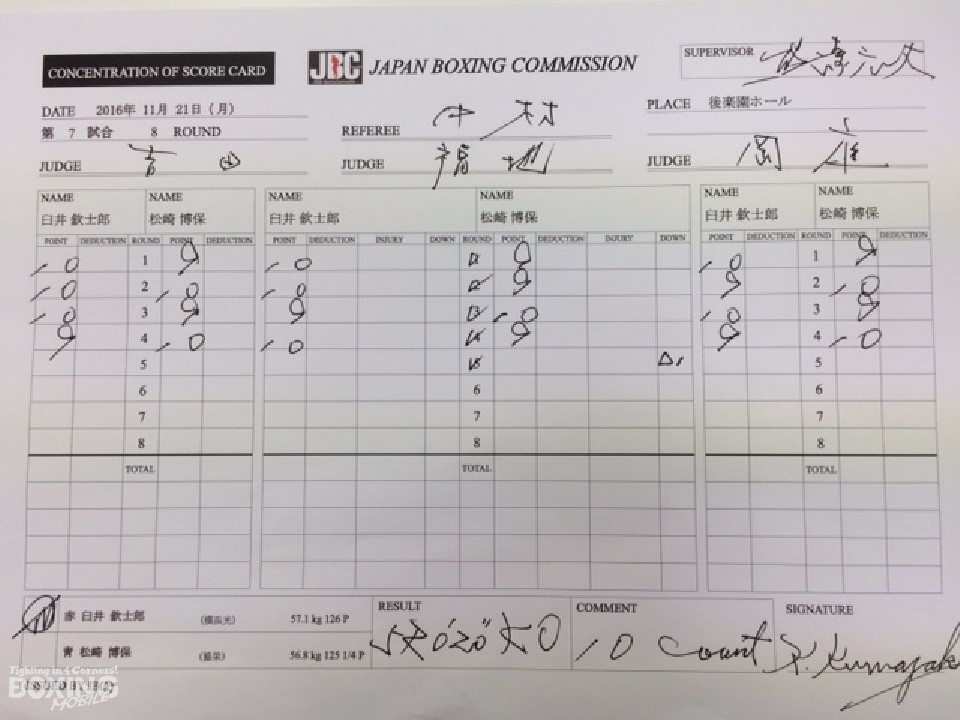 CONCENTRATION OF SCORE CARD
JBC JAPAN BOXING COMMISSION
SUPERVISOR
DATE 2016年 11月 21日 (月)
PLACE 後楽園ホール
第 7 試合 8 ROUND
REFEREE 中村
JUDGE 吉田
JUDGE 福地
JUDGE
NAME NAME NAME NAME NAME NAME
臼井 欽士郎 松崎 博保 臼井 欽士郎 松崎 博保 臼井 欽士郎 松崎 博保
POINT DEDUCTION ROUND POINT DEDUCTION POINT DEDUCTION INJURY DOWN ROUND POINT DEDUCTION INJURY DOWN POINT DEDUCTION ROUND POINT DEDUCTION
10 1 9 10 9 10 1 9
10 2 10 10 9 9 2 10
10 3 9 9 10 10 3 9
9 4 10 10 9 9 4 10
5 5
6 6 6
7 7 7
8 8 8
TOTAL TOTAL TOTAL
赤 臼井 欽士郎 (横浜光) 57.1 kg 126 P
青 松崎 博保 (協栄) 56.8 kg 125 1/4 P
RESULT
5R 0'20" KO
COMMENT
10 count
SIGNATURE
Fighting in 4 Corners!
BOXING
MOBILE
ISSUED BY